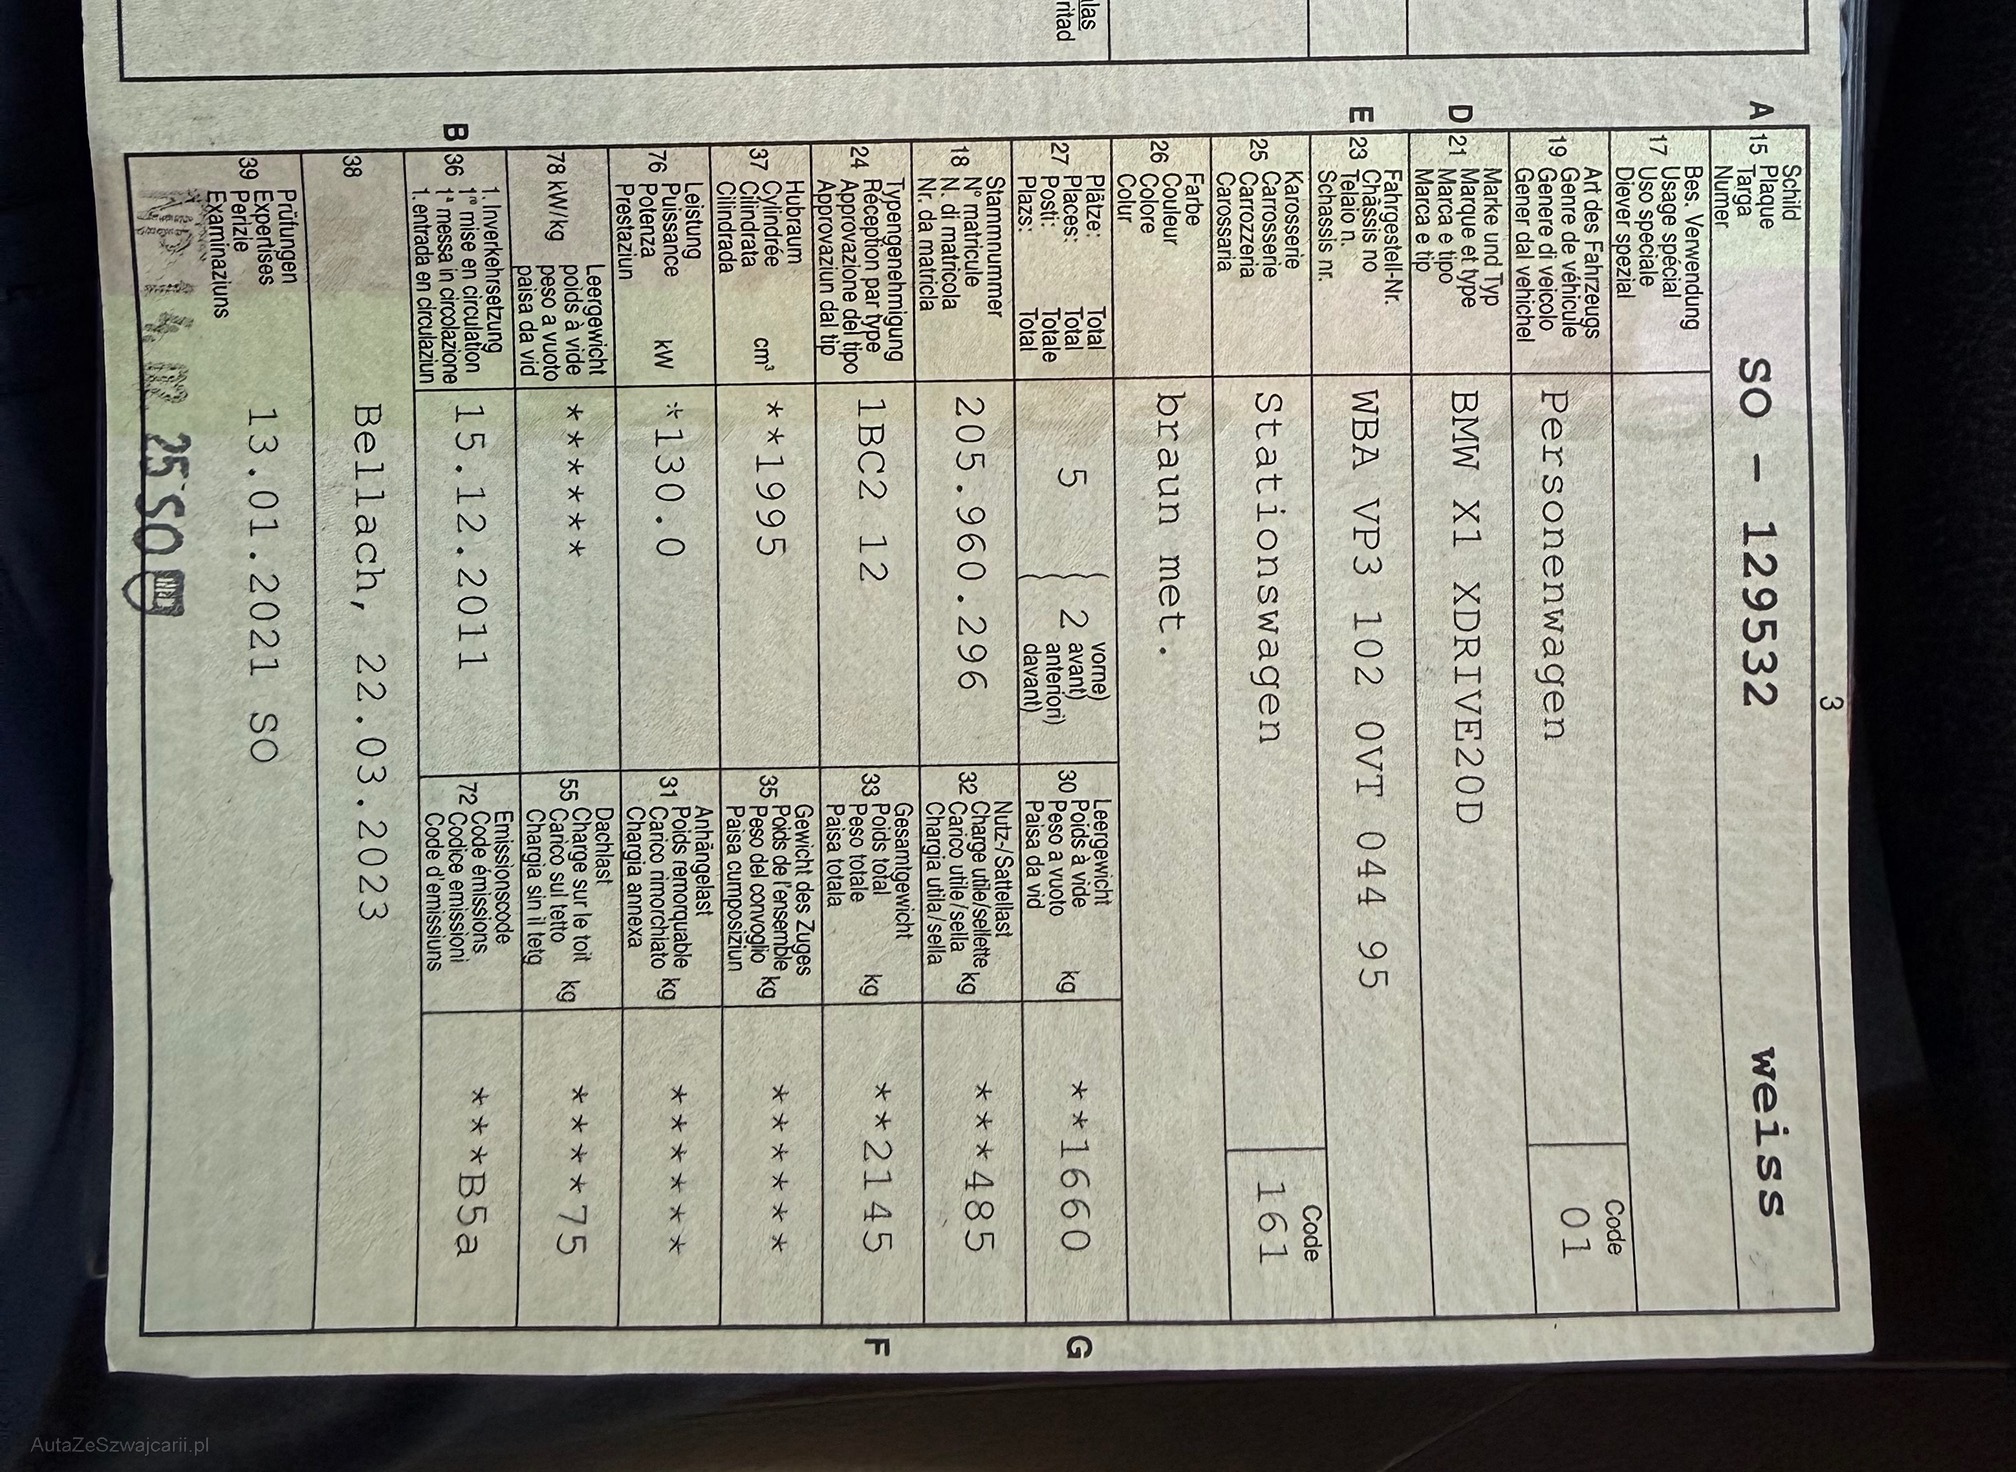 las
ritad
3
A 15 Schild
Plaque
Targa
Numer
SO - 129532 weiss
17 Bes. Verwendung
Usage spécial
Uso speciale
Diever spezial
19 Art des Fahrzeugs
Genre de véhicule
Genere di veicolo
Gener dal vehichel
Personenwagen
Code
01
D 21 Marke und Typ
Marque et type
Marca e tipo
Marca e tip
BMW X1 XDRIVE20D
E 23 Fahrgestell-Nr.
Châssis no
Telaio n.
Schassis nr.
WBA VP3 102 0VT 044 95
25 Karosserie
Carrosserie
Carrozzeria
Carossaria
Stationswagen
Code
161
26 Farbe
Couleur
Colore
Colur
braun met.
27 Plätze: Total
Places: Total
Posti: Totale
Plazs: Total
5
2 vorne)
avant)
anteriori)
davant)
30 Leergewicht
Poids à vide
Peso a vuoto kg
Paisa da vid
**1660
G
18 Stammnummer
No matricule
N. di matricola
Nr. da matricla
205.960.296
32 Nutz-/Sattellast
Charge utile/sellette kg
Carico utile/sella
Chargia utila/sella
***485
24 Typengenehmigung
Réception par type
Approvazione del tipo
Approvaziun dal tip
1BC2 12
33 Gesamtgewicht
Poids total
Peso totale kg
Paisa totala
**2145
F
37 Hubraum
Cylindrée
Cilindrata cm³
Cilindrada
**1995
35 Gewicht des Zuges
Poids de l'ensemble
Peso del convoglio kg
Paisa cumposiziun
******
76 Leistung
Puissance
Potenza kW
Prestaziun
*130.0
31 Anhängelast
Poids remorquable
Carico rimorchiato kg
Chargia annexa
******
78 kW/kg Leergewicht
poids à vide
peso a vuoto
paisa da vid
******
55 Dachlast
Charge sur le toit
Carico sul tetto kg
Chargia sin il tetg
****75
B 36 1. Inverkehrsetzung
1re mise en circulation
1a messa in circolazione
1. entrada en circulaziun
15.12.2011
72 Emissionscode
Code émissions
Codice emissioni
Code d'emissiuns
***B5a
38
Bellach, 22.03.2023
39 Prüfungen
Expertises
Perizie
Examinaziuns
13.01.2021 SO
25 SO
AutaZeSzwajcarii.pl